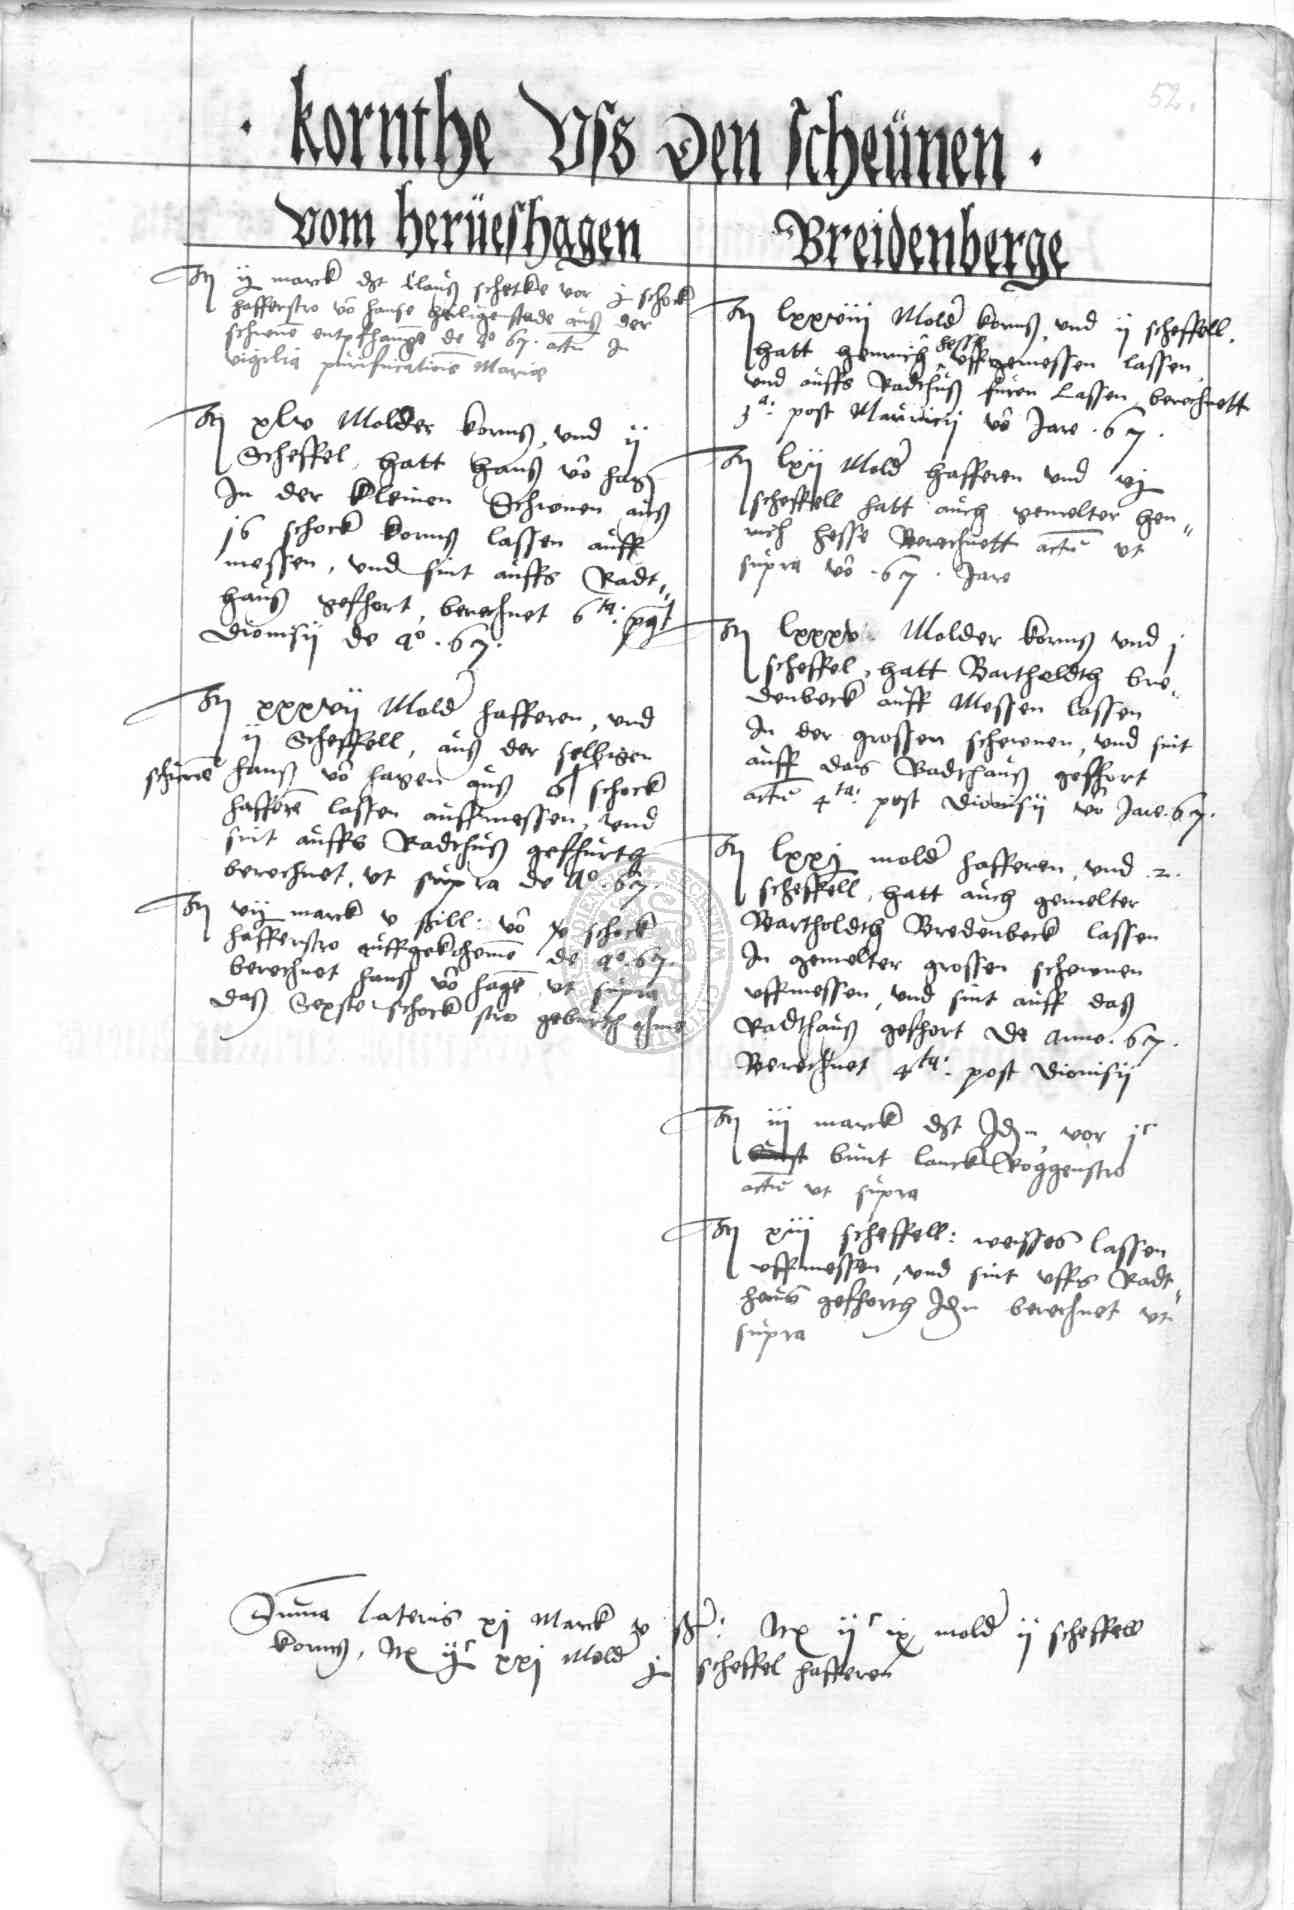 52.
· kornthe Uss den scheünen ·
vom herüeshagen
It ij marck dt Claus schetke vor j schock
hafferstro vō hanse heiligenstade aus der
schienē entpfhangē de Ao 67. actū In
vigilia purificatiōis Mariæ
It xlv Molder korns, und ij
Scheffel, hatt hans vō hagē
In der kleinen Schienen aus
16 schock korns lassen auff
messen, und sint auffs Radt„
haus gefhort, berechnet 6ta: post
Dionisij de Ao. 67.
It xxxvij Mold hafferen, und
ij Scheffell, aus der selbigen
schurē hans vō hagen aus schock
hafferē lassen auffmessen, und
sint auffs Radthus gefhurth
berechnet, ut supra de Ao. 67.
It vij marck v ßill: vō schock
hafferstro auffgekhomē de ao. 67.
berechnet hans vō hagē ut supra
das Sexste schock stro geburth
Breidenberge
It lxxviij Mold korns, und ij scheffell.
hatt henrich hesse uffgemessen lassen
und auffs Radthus furen Lassen, berechnett
3a: post Mauricij vō Jare . 67.
It lxij Mold hafferen und vj
scheffell hatt auch gemelter hen„
rich hesse Berechnett actū ut
supra vō . 67. Jare
It lxxxv Molder korns und j
scheffel, hatt Bartholdth bre„
denbeck auff Messen lassen
In der grossen schewnen, und sint
auff das Radthaus gefhort
actū 4ta: post Dionisij vō Jare. 67.
It lxxj mold hafferen, und .2.
scheffell, hatt auch gemelter
Bartholdth Bredenbeck lassen
In gemelter grossen schewnen
uffmessen, und sint auff das
Radthaus gefhort De anno. 67.
Berechnet 4ta: post Dionisij
It iij marck dt Idem vor jc
bunt lanck Roggenstro
actū ut supra
It xiij scheffell: weisses lassen
uffmessen, und sint uffs Radt„
haus gefhorth Idem berechnet ut
supra
Summa Lateris xj Marck v ß: Itē ijc ix mold ij scheffell
korns, Itē jc xxj Mold j scheffel hafferen